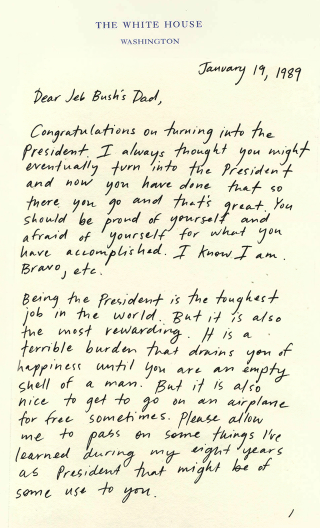 THE WHITE HOUSE
WASHINGTON
January 19, 1989
Dear Jeb Bush's Dad,
Congratulations on turning into the
President. I always thought you might
eventually turn into the President
and now you have done that so
there you go and that's great. You
should be proud of yourself and
afraid of yourself for what you
have accomplished. I know I am.
Bravo, etc.
Being the President is the toughest
job in the world. But it is also
the most rewarding. It is a
terrible burden that drains you of
happiness until you are an empty
shell of a man. But it is also
nice to get to go on an airplane
for free sometimes. Please allow
me to pass on some things I've
learned during my eight years
as President that might be of
some use to you.
1